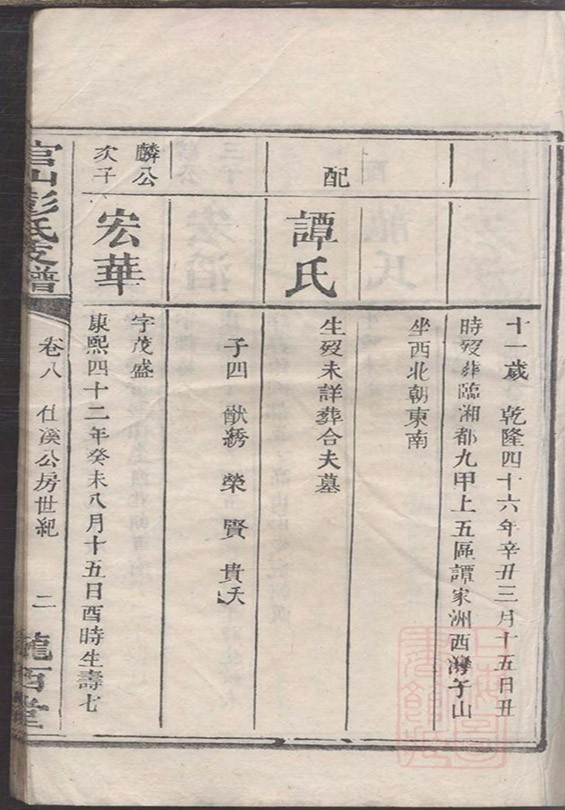 十一歲 乾隆四十六年辛丑三月十五日丑
時歿葬臨湘都九甲上五區譚家洲西灣子山
坐西北朝東南
配
譚氏
生歿未詳葬合夫墓
子四 猷綉 榮 賢 貴夭
麟公
次子
宏華
字茂盛
康熙四十二年癸未八月十五日酉時生壽七
官山彭氏支譜
卷八 仕溪公房世紀
二
龍西堂